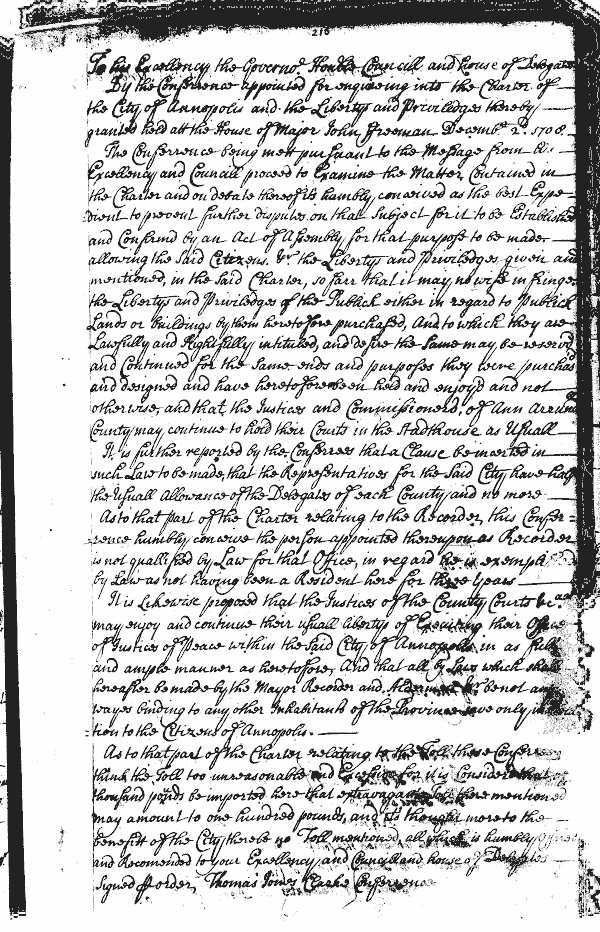 216
To his Excellency the Governor Honble Councill and house of Delegates
By the Conference appointed for enquireing into the Charter of
the City of Annopolis and the Liberty and Priviledges thereby
granted held att the House of Major John Freeman Decembr 2d 1708.
The Conferrence being mett pursuant to the Message from his
Excellency and Councill proceed to Examine the Matter Contained in
the Charter and on debate thereof its humbly conceived as the best Expe
dient to prevent further disputes on that Subject for it to be Established
and Confirmd by an Act of Assembly for that purpose to be made
allowing the said Citizens &c the Liberty and Priviledges given and
mentioned, in the said Charter, so farr that it may no wise infringe
the Libertys and Priviledges of the Publick either in regard to Publick
Lands or buildings by them heretofore purchased, And to which they are
Lawfully and Rightfully intituled, and desire the same may be reserved
and Continued for the same ends and purposes they were purchased
and designed and have heretofore been held and enjoyd and not
otherwise, and that, the Justices and Commissioners, of Ann Arrundel
County may continue to hold their Courts in the Stadthouse as Usuall
It is further reported by the Conferrees that a Clause be inserted in
such Law to be made, that the Representatives for the said City have half
the usuall allowance of the Delegates of each County and no more
As to that part of the Charter relating to the Recorder, this Confer=
rence humbly conceive the person appointed thereupon as Recorder
is not qualifyed by Law for that Office, in regard he is exempted
by Law as not having been a Resident here for three years
It is Likewise proposed that the Justices of the County Courts &c.
may enjoy and continue their usuall libertys of Executing their Office
of Justices of Peace within the said City of Annopolis in as full
and ample manner as heretofore, And that all by Laws which shall
hereafter be made by the Mayor Recorder and Aldermen &c be not any
wayes binding to any other Inhabitants of the Province save only in
tion to the Citizens of Annopolis.
As to that part of the Charter relating to the Toll these Conferr
think the Toll too unreasonable and Excessive for it is Considered that
thousand pounds be imported here that extravagant Toll there mentioned
may amount to one hundred pounds, and its thought more to the
benefitt of the City, there be no Toll mentioned, all which is humbly
and Recomended to your Excellency, and Councill and house of Delegates
Signed p order, Thomas Jones Clarke Conferrence